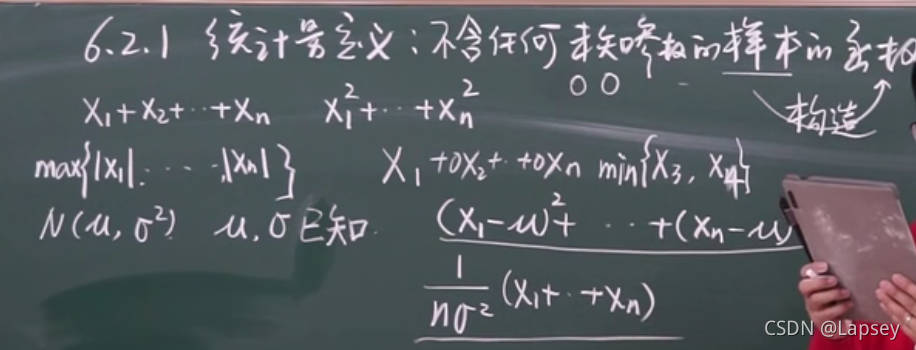 6.2.1 统计量定义:不含任何未知参数的样本的函数
构造
X₁+X₂+···+Xₙ X₁²+···+Xₙ²
max{|X₁|,······,|Xₙ|} X₁+0X₂+··+0Xₙ min{X₃, X₄}
N(μ,σ²) μ,σ已知 (X₁-μ)²+ ··· +(Xₙ-μ)
1/nσ² (X₁+··+Xₙ)
CSDN @Lapsey